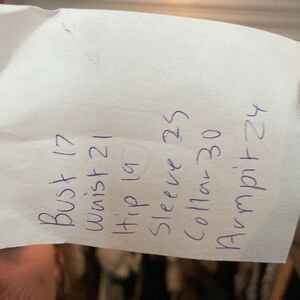 Bust 17
Waist 21
Hip 19
Sleeve 25
Collar 30
Armpit 24